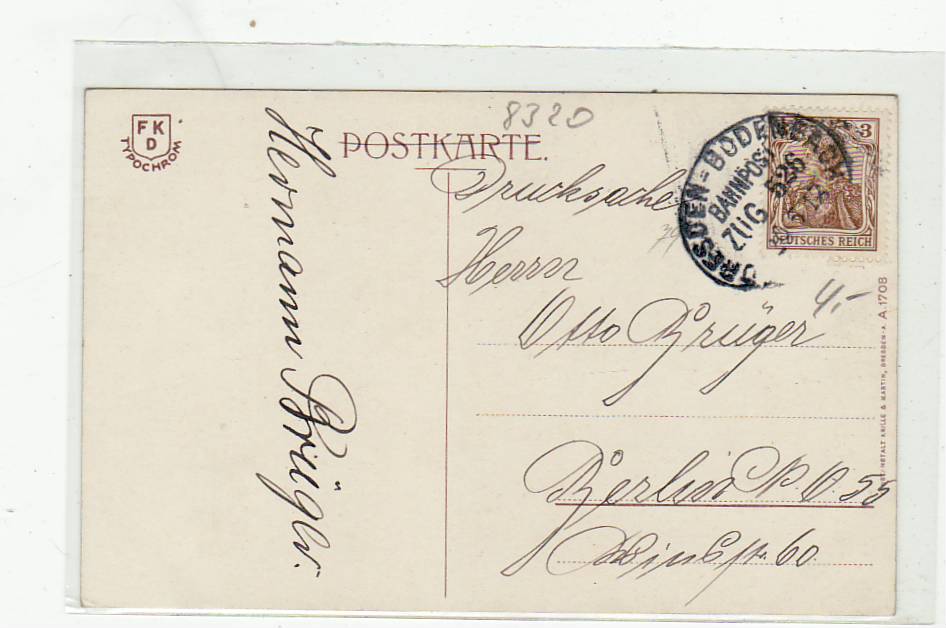 FKD
TYPOCHROM
POSTKARTE.
8320
Drucksache
DRESDEN = BODENBACH
BAHNPOST
ZUG 526
3
DEUTSCHES REICH
Herrn
4.-
Otto Brüger
Berlin N. O. 55
60.
Hermann
KUNSTANSTALT KRILLE & MARTIN, DRESDEN-A. A.1708